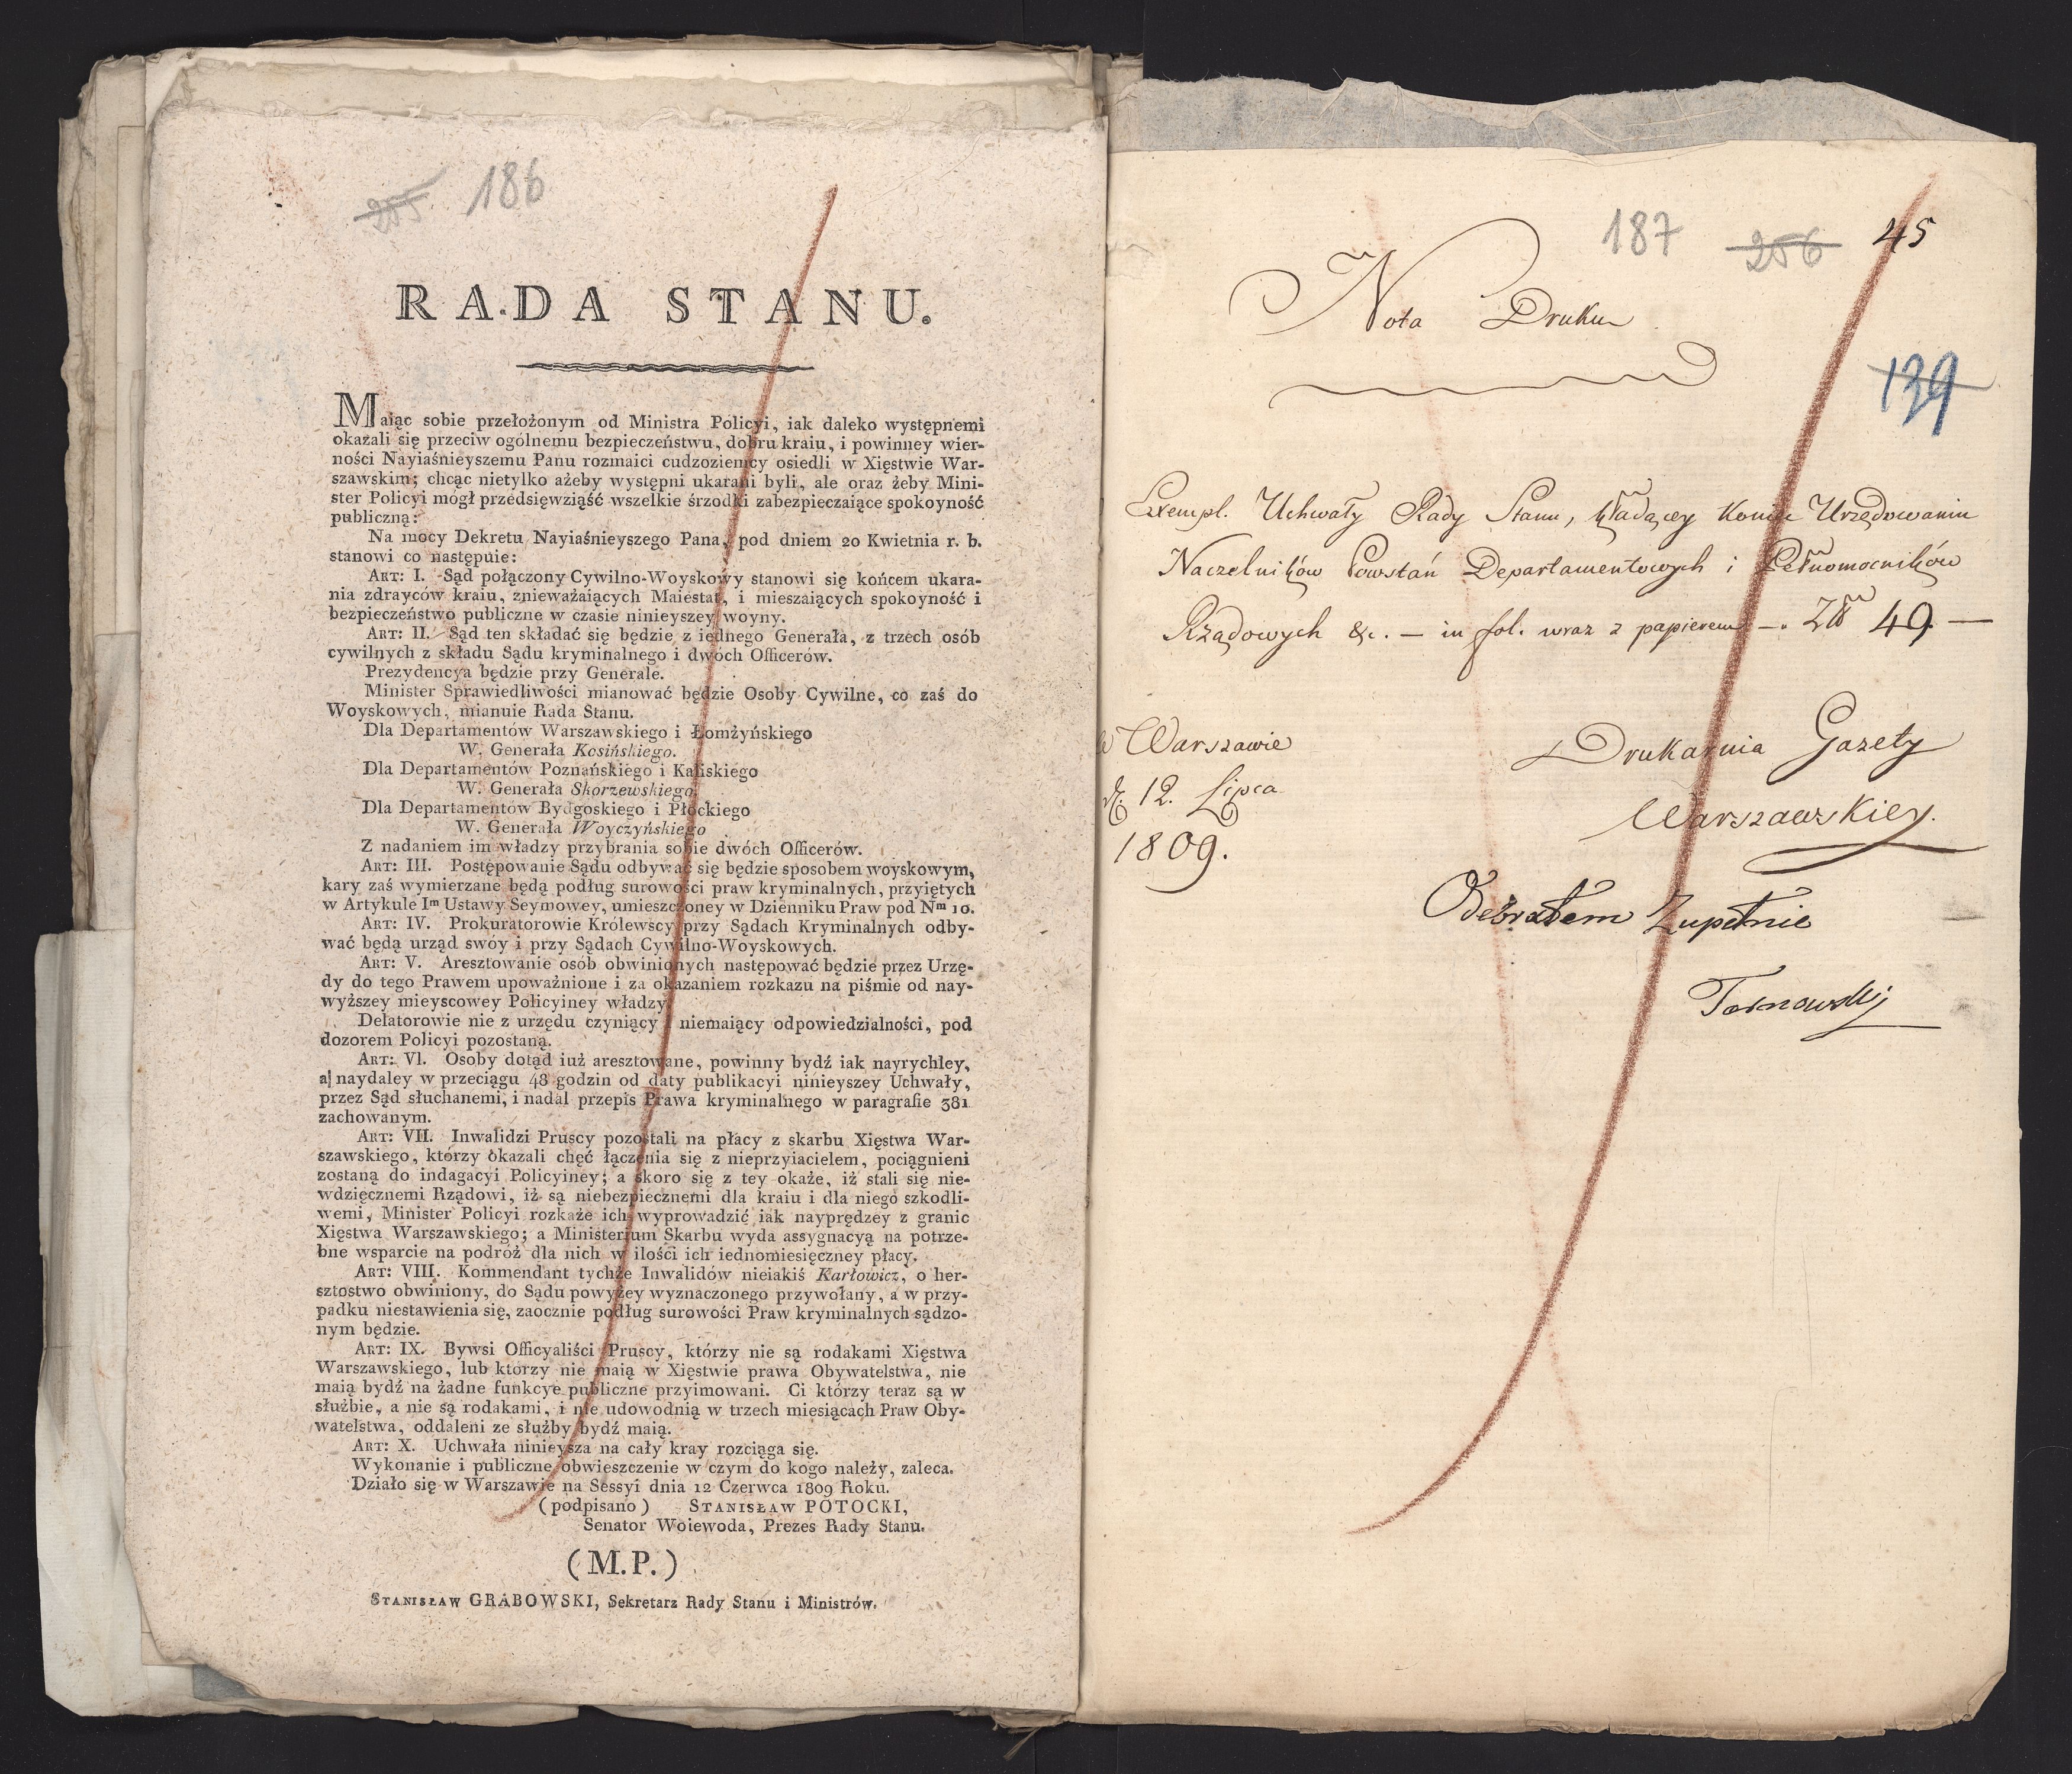 255 186
RADA STANU.
Maiąc sobie przełożonym od Ministra Policyi, iak daleko występnemi
okazali się przeciw ogólnemu bezpieczeństwu, dobru kraiu, i powinney wier-
ności Nayiaśnieyszemu Panu rozmaici cudzoziemcy osiedli w Xięstwie War-
szawskim; chcąc nietylko ażeby występni ukarani byli, ale oraz żeby Mini-
ster Policyi mógł przedsięwziąść wszelkie śrzodki zabezpieczaiące spokoyność
publiczną:
Na mocy Dekretu Nayiaśnieyszego Pana, pod dniem 20 Kwietnia r. b.
stanowi co następuie:
ART: I. Sąd połączony Cywilno-Woyskowy stanowi się końcem ukara-
nia zdrayców kraiu, znieważaiących Maiestat, i mieszaiących spokoyność i
bezpieczeństwo publiczne w czasie ninieyszey woyny.
ART: II. Sąd ten składać się będzie z iednego Generała, z trzech osób
cywilnych z składu Sądu kryminalnego i dwóch Officerów.
Prezydencya będzie przy Generale.
Minister Sprawiedliwości mianować będzie Osoby Cywilne, co zaś do
Woyskowych, mianuie Rada Stanu.
Dla Departamentów Warszawskiego i Łomżyńskiego
W. Generała Kosińskiego.
Dla Departamentów Poznańskiego i Kaliskiego
W. Generała Skorzewskiego.
Dla Departamentów Bydgoskiego i Płockiego
W. Generała Woyczyńskiego
Z nadaniem im władzy przybrania sobie dwóch Officerów.
ART: III. Postępowanie Sądu odbywać się będzie sposobem woyskowym,
kary zaś wymierzane będą podług surowości praw kryminalnych, przyiętych
w Artykule Im Ustawy Seymowey, umieszczoney w Dzienniku Praw pod Nm 10.
ART: IV. Prokuratorowie Królewscy przy Sądach Kryminalnych odby-
wać będą urząd swóy i przy Sądach Cywilno-Woyskowych.
ART: V. Aresztowanie osób obwinionych następować będzie przez Urzę-
dy do tego Prawem upoważnione i za okazaniem rozkazu na piśmie od nay-
wyższey mieyscowey Policyiney władzy.
Delatorowie nie z urzędu czyniący i niemaiący odpowiedzialności, pod
dozorem Policyi pozostaną.
ART: VI. Osoby dotąd iuż aresztowane, powinny bydź iak nayrychley,
a naydaley w przeciągu 48 godzin od daty publikacyi ninieyszey Uchwały,
przez Sąd słuchanemi, i nadal przepis Prawa kryminalnego w paragrafie 381
zachowanym.
ART: VII. Inwalidzi Pruscy pozostali na płacy z skarbu Xięstwa War-
szawskiego, którzy okazali chęć łączenia się z nieprzyiacielem, pociągnieni
zostaną do indagacyi Policyiney; a skoro się z tey okaże, iż stali się nie-
wdzięcznemi Rządowi, iż są niebezpiecznemi dla kraiu i dla niego szkodli-
wemi, Minister Policyi rozkaże ich wyprowadzić iak nayprędzey z granic
Xięstwa Warszawskiego; a Ministerium Skarbu wyda assygnacyą na potrze-
bne wsparcie na podróż dla nich w ilości ich iednomiesięczney płacy.
ART: VIII. Kommendant tychże Inwalidów nieiakiś Karłowicz, o her-
sztostwo obwiniony, do Sądu powyżey wyznaczonego przywołany, a w przy-
padku niestawienia się, zaocznie podług surowości Praw kryminalnych sądzo-
nym będzie.
ART: IX. Bywsi Officyaliści Pruscy, którzy nie są rodakami Xięstwa
Warszawskiego, lub którzy nie maią w Xięstwie prawa Obywatelstwa, nie
maią bydź na żadne funkcye publiczne przyimowani. Ci którzy teraz są w
służbie, a nie są rodakami, i nie udowodnią w trzech miesiącach Praw Oby-
watelstwa, oddaleni ze służby bydź maią.
ART: X. Uchwała ninieysza na cały kray rozciąga się.
Wykonanie i publiczne obwieszczenie w czym do kogo należy, zaleca.
Działo się w Warszawie na Sessyi dnia 12 Czerwca 1809 Roku.
(podpisano) STANISŁAW POTOCKI,
Senator Woiewoda, Prezes Rady Stanu.
(M.P.)
STANISŁAW GRABOWSKI, Sekretarz Rady Stanu i Ministrów.
187 256 45
Nota Druku
139
Exempl. Uchwały Rady Stanu, kładącey koniec Urzędowaniu
Naczelników Powstań Departamentowych i Pełnomocników
Rządowych &c. – in fol. wraz z papierem –. Złł 49. –
w Warszawie
d. 12. Lipca
1809.
Drukarnia Gazety
Warszawskiey.
Odebrałem Zupełnie
Tarnowski